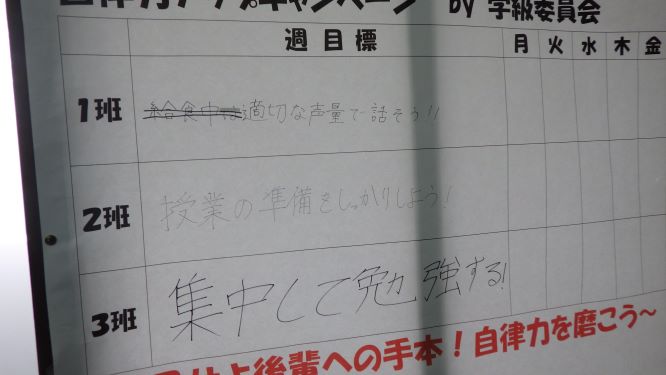 自律力アップキャンペーン by 学級委員会
週目標 月 火 水 木 金
1班 給食中は適切な声量で話そう!!
2班 授業の準備をしっかりしよう!
3班 集中して勉強する!
後輩への手本!自律力を磨こう~